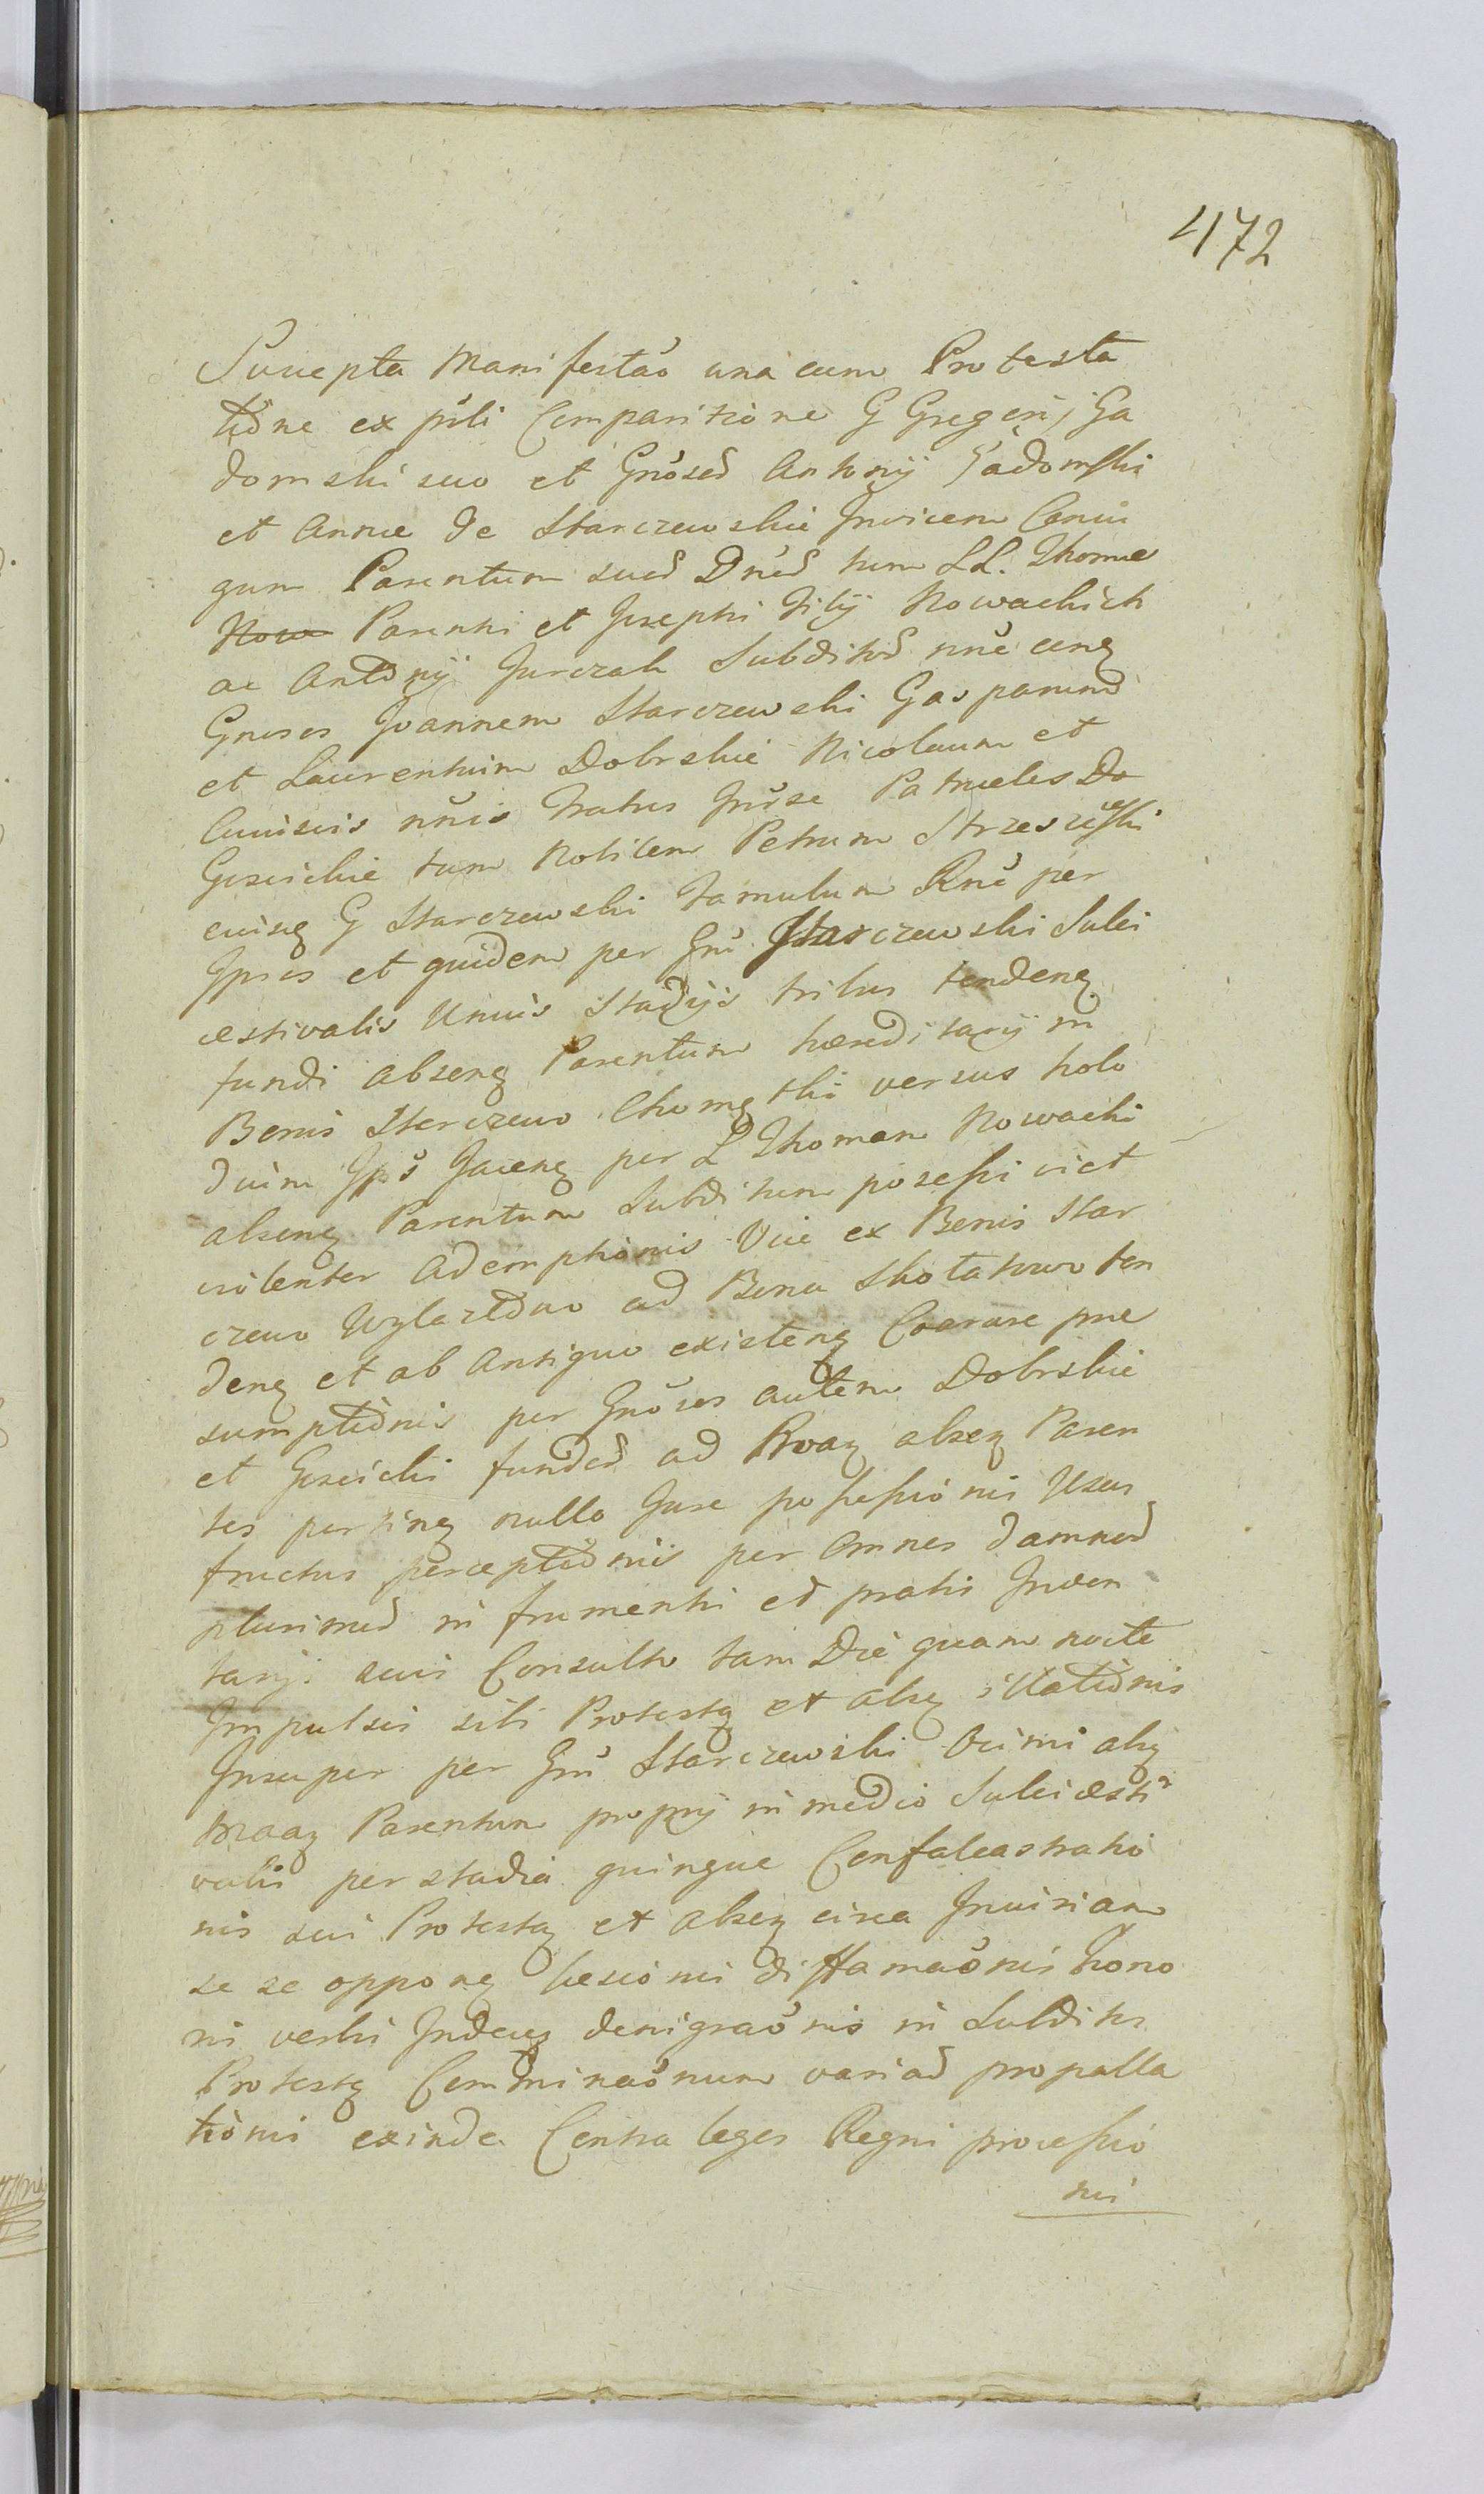 472
Suscepta Manifestaõ una cum Protesta
tiõne ex pñli Comparitione G Gregorij Ga
domski suo et Gnõsoȓ Antonij Gadomski
et Annæ de Starczewskie Invicem Coniu
gum Parentum suoȓ Dnoȓ tum LL. Thomæ
Now Parentis et Josephi filij Nowackich
ac Antonij Jurczak Subditoȓ nõe conȝ
Gnosos Joannem Starczewski Gasparum
et Laurentium Dobrskie Nicolaum et
nños Fratres inter se Patrueles Do
Goscickie tum Nobilem Petrum Strzeszewski
eiusȝ G Starczewski famulum Rnẽ per
Ipsos et quidem per Gnũ Starczewski Sulci
æstivalis Unius Stadijs tribus tendenȝ
fundi absenȝ Parentum hæreditarij in
Bonis Starczewo versus holo
duim Ipsõ Jacenȝ per L Thomam Nowacki
absenȝ Parentum Subditum possessi vict
violenter Ademptionis Viæ ex Bonis Star
czewo Wylazłowo ad Bona Skotatowo ten
denȝ et ab Antiquo existenȝ Coarare præ
sumptiõnis per Gnõsos autem Dobrskie
et Goscicki fundoȓ ad Proaȝ absenȝ Paren
tes pertinȝ nullo Jure possessiõnis Usus
fructus perceptiõnis per Omnes damnoȓ
plurimoȓ in frumentis et pratis Inven
tarij sui Consulto tam Die quam nocte
Impulsu sibi Protestȝ et absȝ illatiõnis
Insuper per Gnũ Starczewski absȝ
Parentum proprij in medio Sulci æsti
valis per stadia quinque Confalcastratio
nis sui Protestȝ et absenȝ circa Iniuriam
se se opponȝ læsiõnis diffamaõnis hono
ris verbis Indecȝ denigraõnis in Subditos
Protestȝ Comminaõnum variaȓ propalla
tiõnis exinde Contra leges Regni processio
nis